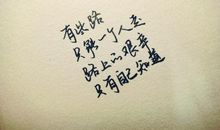 有些路
只能一个人走
路上的艰辛
只有自己知道